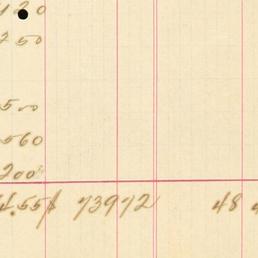 120
250
500
560
200
4.55 73972 48